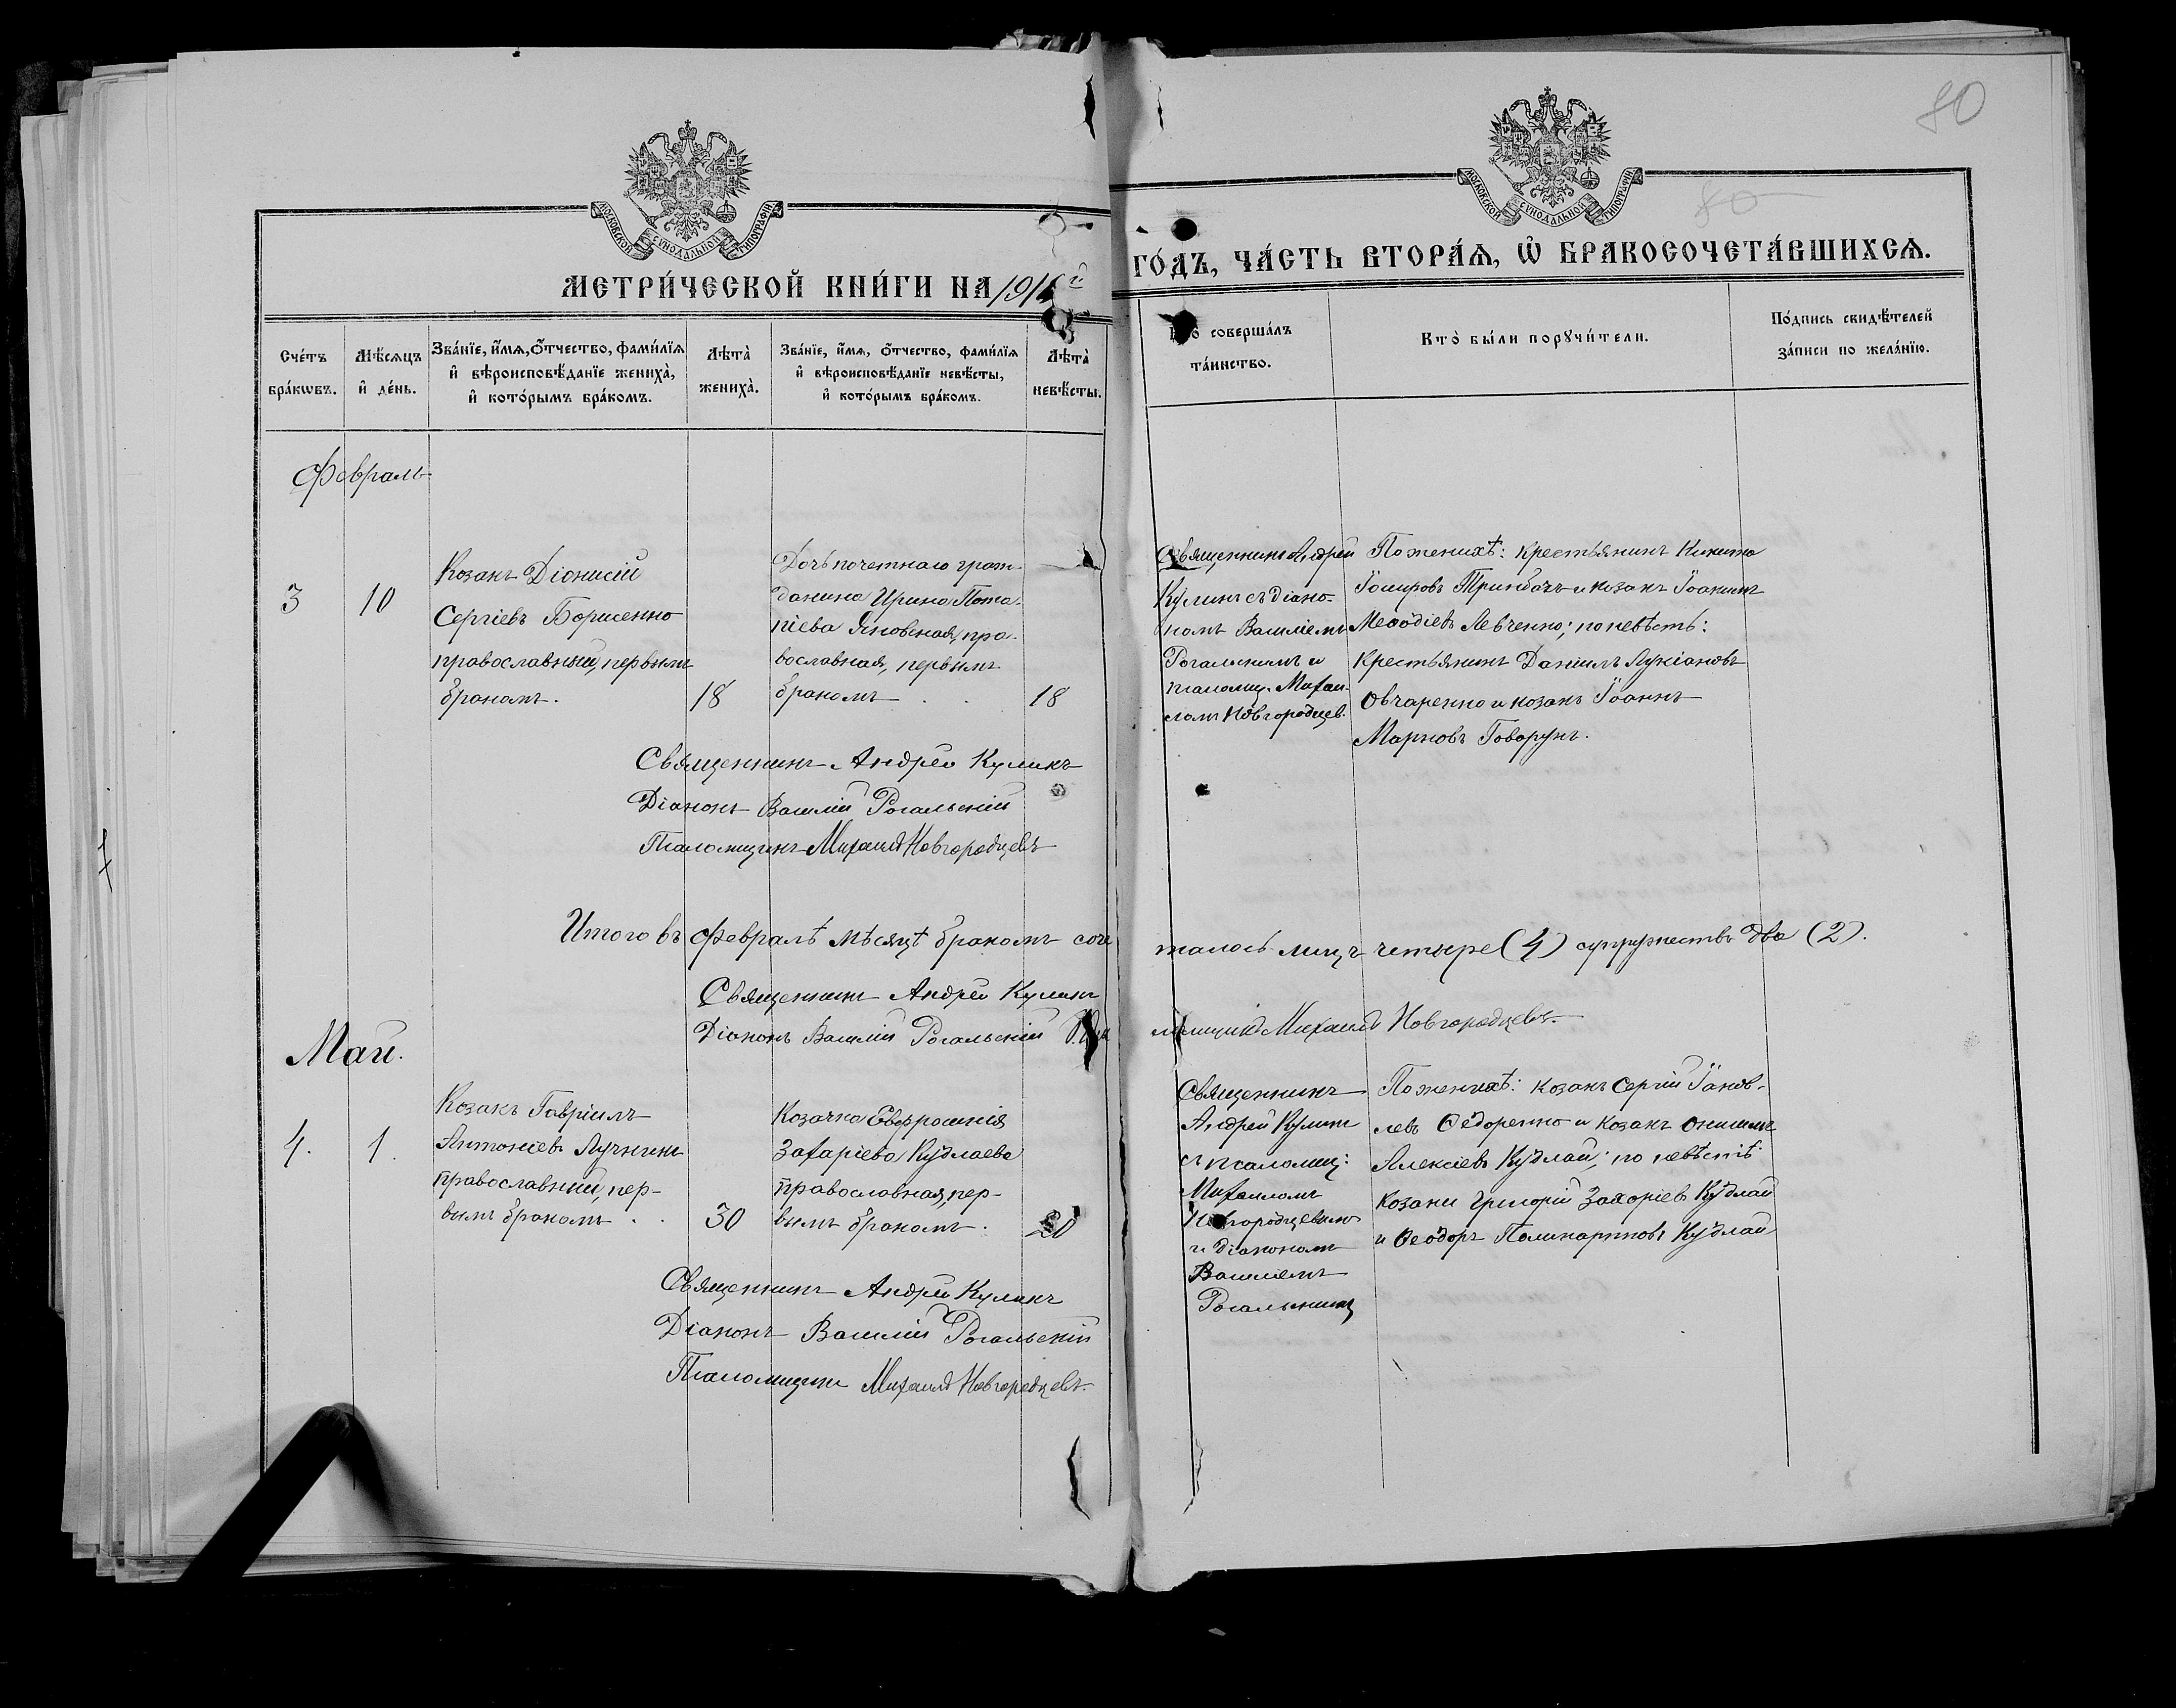 80
80
МОСКОВСКОЙ СУНОДАЛЬНОЙ ТИПОГРАФІИ
МОСКОВСКОЙ СУНОДАЛЬНОЙ ТИПОГРАФІИ
МЕТРИ́ЧЕСКОЙ КНИ́ГИ НА 191 й
ГО́ДЪ, ЧА́СТЬ ВТОРА́Ѧ, Ѡ҆ БРАКОСОЧЕТА́ВШИХСѦ.
Сче́тъ бра́кѡвъ.
Мѣ́сѧцъ и҆ де́нь.
Зва́нїе, и҆́мѧ, ѻ҆́тчество, фами́лїѧ и҆ вѣроисповѣ́данїе жениха̀, и҆ кото́рымъ бра́комъ.
Лѣта̀ жениха̀.
Зва́нїе, и҆́мѧ, ѻ҆́тчество, фами́лїѧ и҆ вѣроисповѣ́данїе невѣ́сты, и҆ кото́рымъ бра́комъ.
Лѣта̀ невѣ́сты.
Кто̀ соверша́лъ та́инство.
Кто̀ бы́ли порꙋчи́тели.
По́дпись свидѣ́телей за́писи по жела́нїю.
Февраль
3
10
Козакъ Діонисій
Сергіевъ Борисенко
православный, первымъ
бракомъ.
18
Дочь почетнаго граж-
данина Ирина Пота-
піева Яновская, пра-
вославная, первымъ
бракомъ
18
Священникъ Андрей
Куликъ съ діако-
номъ Василіемъ
Рогальскимъ и
псаломщ. Михаи-
ломъ Новгородцев.
По женихѣ: крестьянинъ Никита
Іосифовъ Тринбачъ и козакъ Іоакимъ
Меѳодіевъ Левченко; по невѣстѣ:
крестьянинъ Даніилъ Лукіановъ
Овчаренко и козакъ Іоаннъ
Марковъ Говорунъ.
Священникъ Андрей Куликъ
Діаконъ Василій Рогальскій
Псаломщикъ Михаилъ Новгородцевъ
Итого въ Февралѣ мѣсяцѣ бракомъ соче
талось лицъ четыре (4) супружествъ два (2).
Священникъ Андрей Куликъ
Діаконъ Василій Рогальскій
ломщикъ Михаилъ Новгородцевъ.
Май.
4.
1.
Козакъ Гавріилъ
Антоніевъ Лучникъ
православный, пер-
вымъ бракомъ . .
30
Козачка Евфросинія
Захаріева Кудлаева
православная, пер-
вымъ бракомъ.
20
Священникъ
Андрей Куликъ
съ псаломщ:
Михаиломъ
Новгородцевымъ
и діакономъ
Василіемъ
Рогальскимъ
По женихѣ: козакъ Сергій Іаков-
левъ Ѳедоренко и козакъ Онисимъ
Алексіевъ Кудлай; по невѣстѣ
козаки Григорій Захаріевъ Кудлай
и Ѳеодоръ Поликарповъ Кудлай
Священникъ Андрей Куликъ
Діаконъ Василій Рогальскій
Псаломщикъ Михаилъ Новгородцевъ.